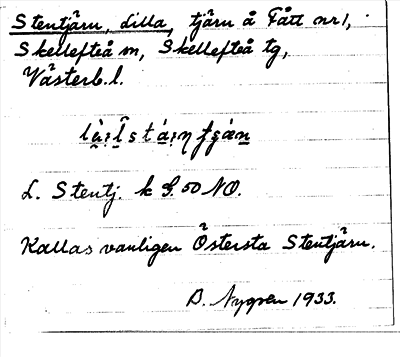 Stentjärn, dilla, tjärn å Fått nr 1,
Skellefteå m, Skellefteå tg,
Västerb. l.
L. Stentj. k S. 50 NO.
Kallas vanligen Östersta Stentjärn.
D. Nygren 1933.